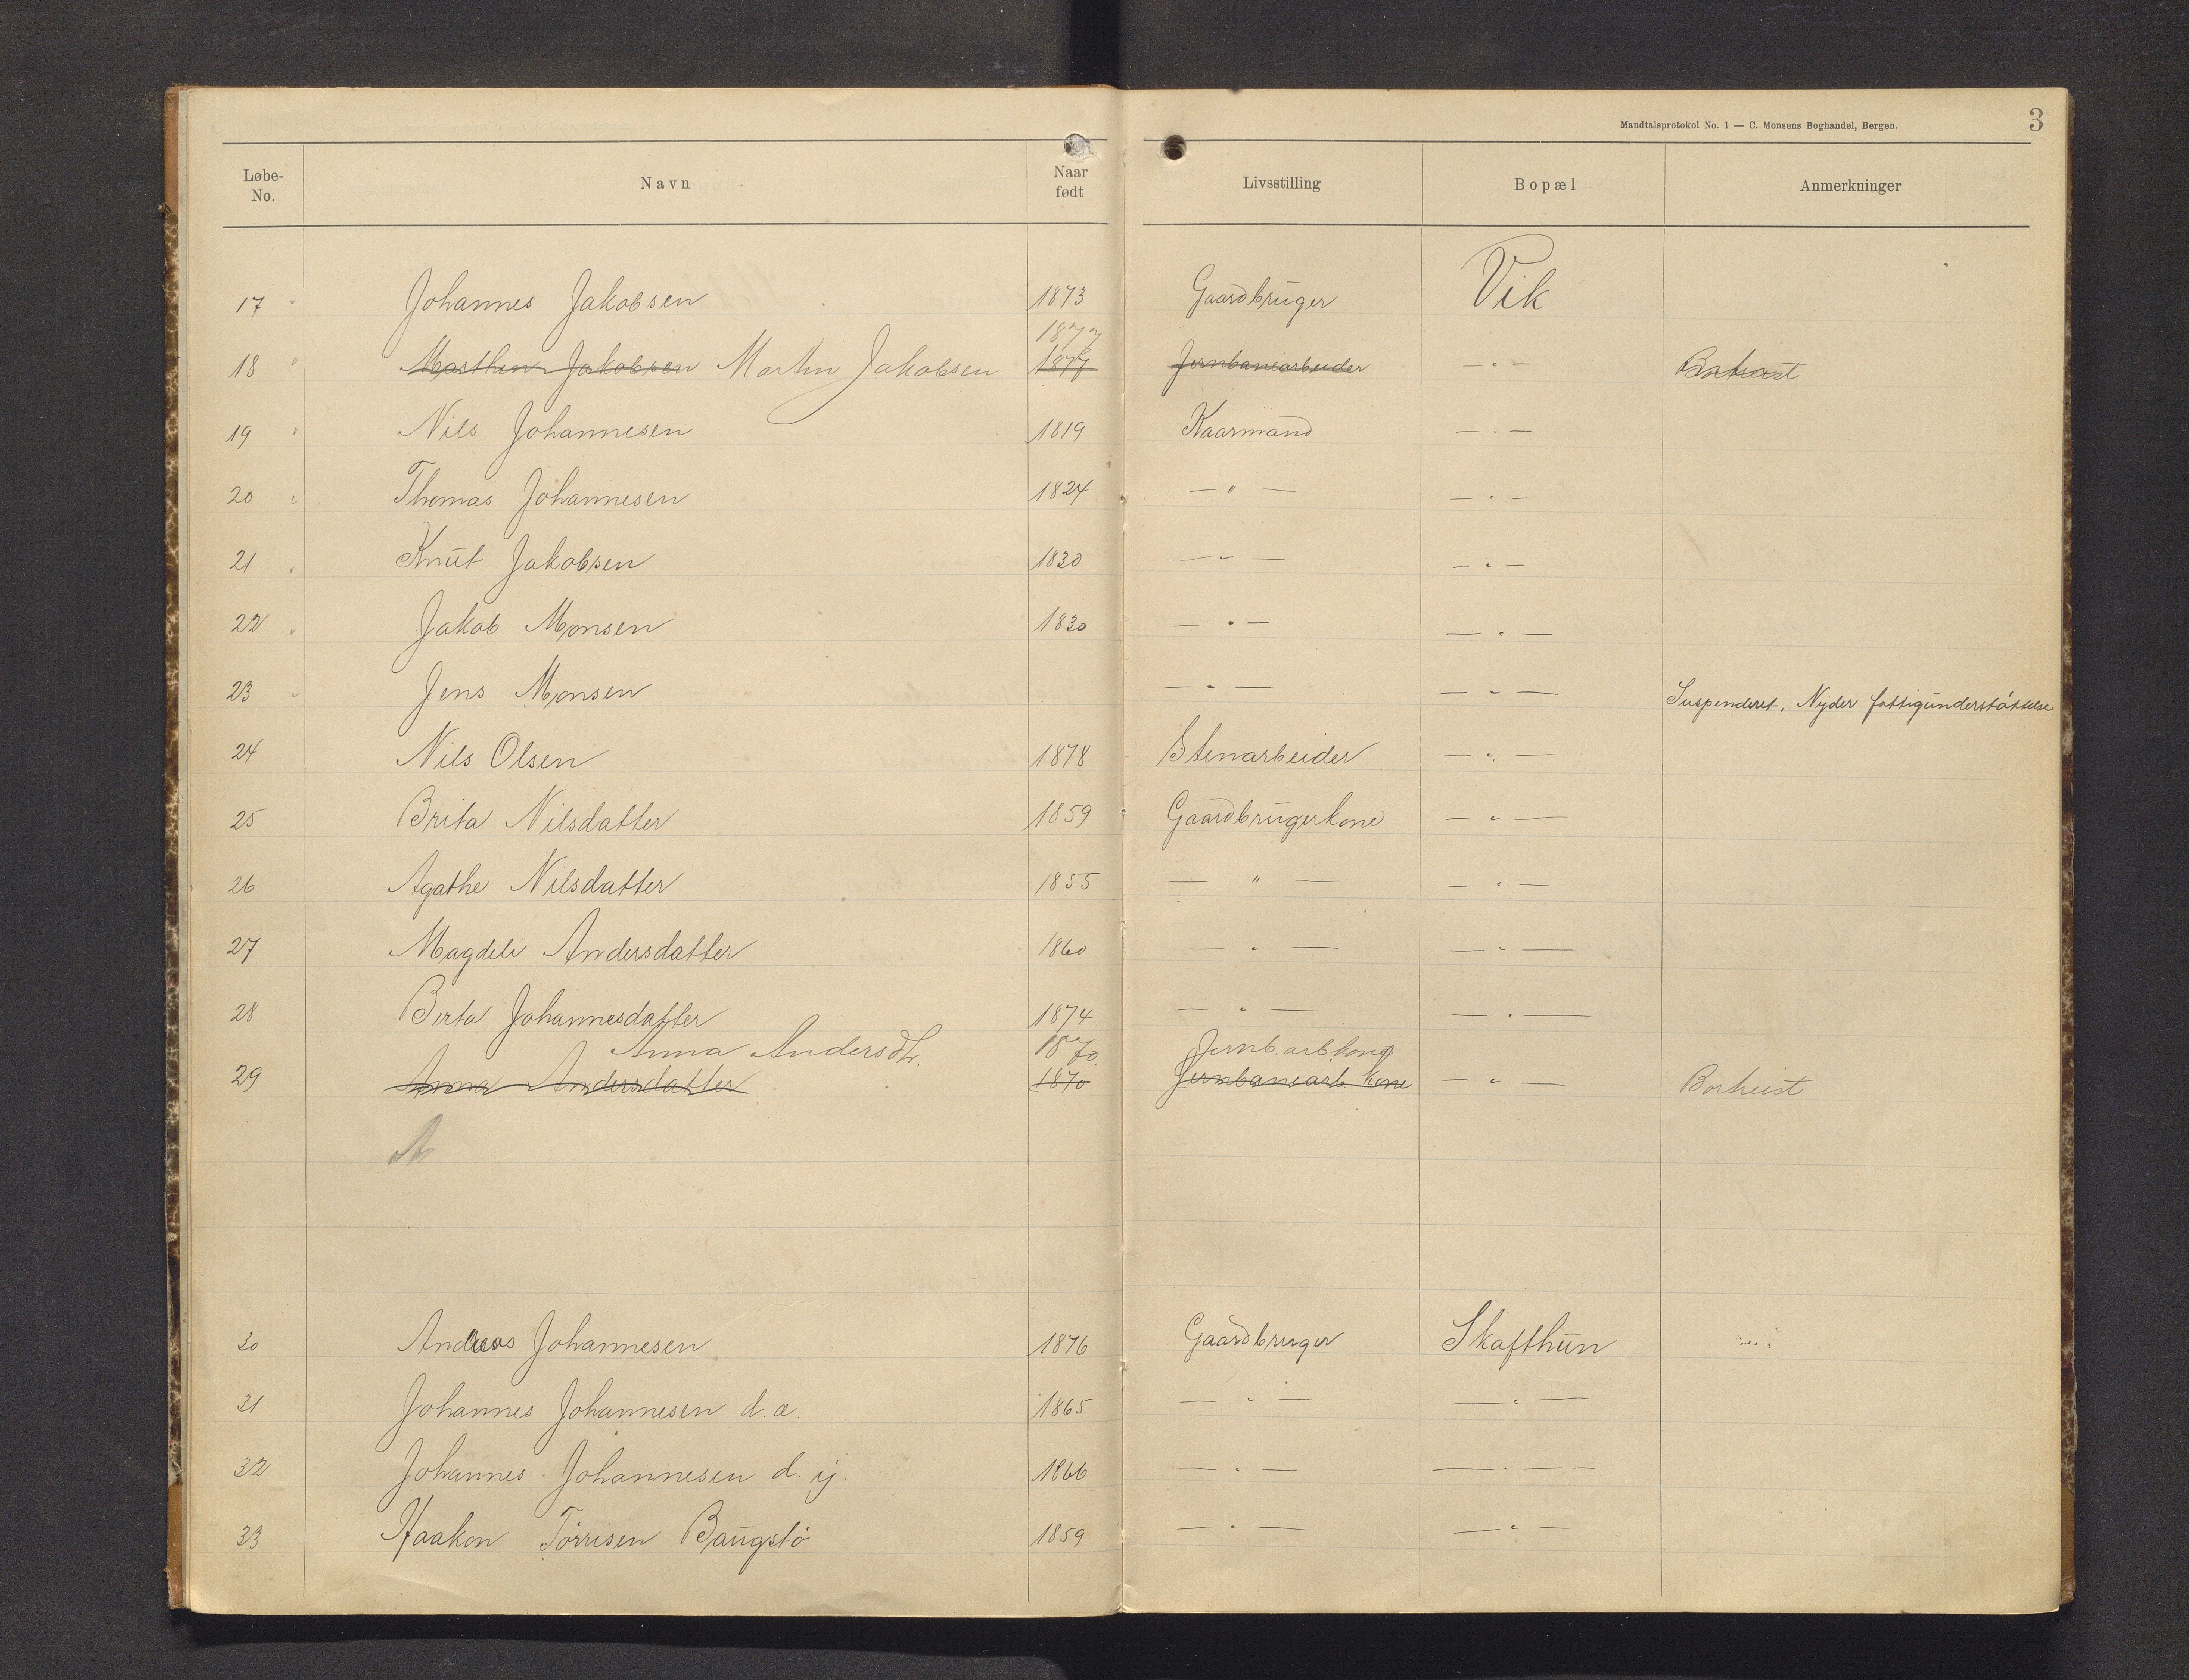 Mandtalsprotokol No. 1 — C. Monsens Boghandel, Bergen. 3
Løbe-No. Navn Naar født Livsstilling Bopæl Anmerkninger
17 " Johannes Jakobsen 1873 Gaardbruger Vik
1877
18 " Marthin Jakobsen Martin Jakobsen 1877 Jernbanearbeider — " —
19 " Nils Johannesen 1819 Kaarmand — " —
20 " Thomas Johannesen 1824 — " — — " —
21 " Knut Jakobsen 1830 — " — — " —
22 " Jakob Monsen 1830 — " — — " —
23 " Jens Monsen — " — — " — Suspenderet. Nyder fattigunderstøttelse
24 Nils Olsen 1878 Stenarbeider — " —
25 Brita Nilsdatter 1859 Gaardbrugerkone — " —
26 Agathe Nilsdatter 1855 — " — — " —
27 Magdeli Andersdatter 1860 — " — — " —
28 Berta Johannesdatter 1874 — " — — " —
Anna Andersdtr. 1870 Jernb.arb.kone
29 Anna Andersdatter 1870 Jernbanearb kone — " — Borheist
A
30 Andreas Johannesen 1876 Gaardbruger Skafthun
31 Johannes Johannesen d.æ. 1865 — " — — " —
32 Johannes Johannesen d. y. 1866 — " — — " —
33 Haakon Tørrisen Baugstø 1859 — " — — " —